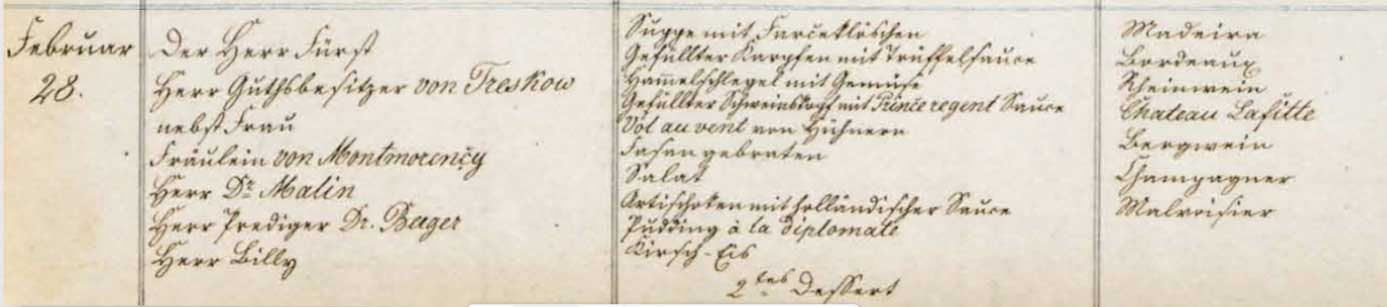 Februar
28.
Der Herr Fürst
Herr Guthsbesitzer von Treskow
nebst Frau
Fräulein von Montmorency
Herr Dr. Malin
Herr Prediger Dr.
Herr Billy
Suppe mit Farceklöschen
Gefüllter Karpfen mit Trüffelsauce
Ham̅elschlegel mit Gemüse
Gefüllter Schweinskopf mit Prince regent Sauce
Vol au vent von Hühnern
Fasan gebraten
Salat
Artischoken mit holländischer Sauce
Pudding à la diplomate
Kirsch-Eis
2tes Dessert
Madeira
Bordeaux
Rheinwein
Chateau Lafitte
Bergwein
Champagner
Malvoisier